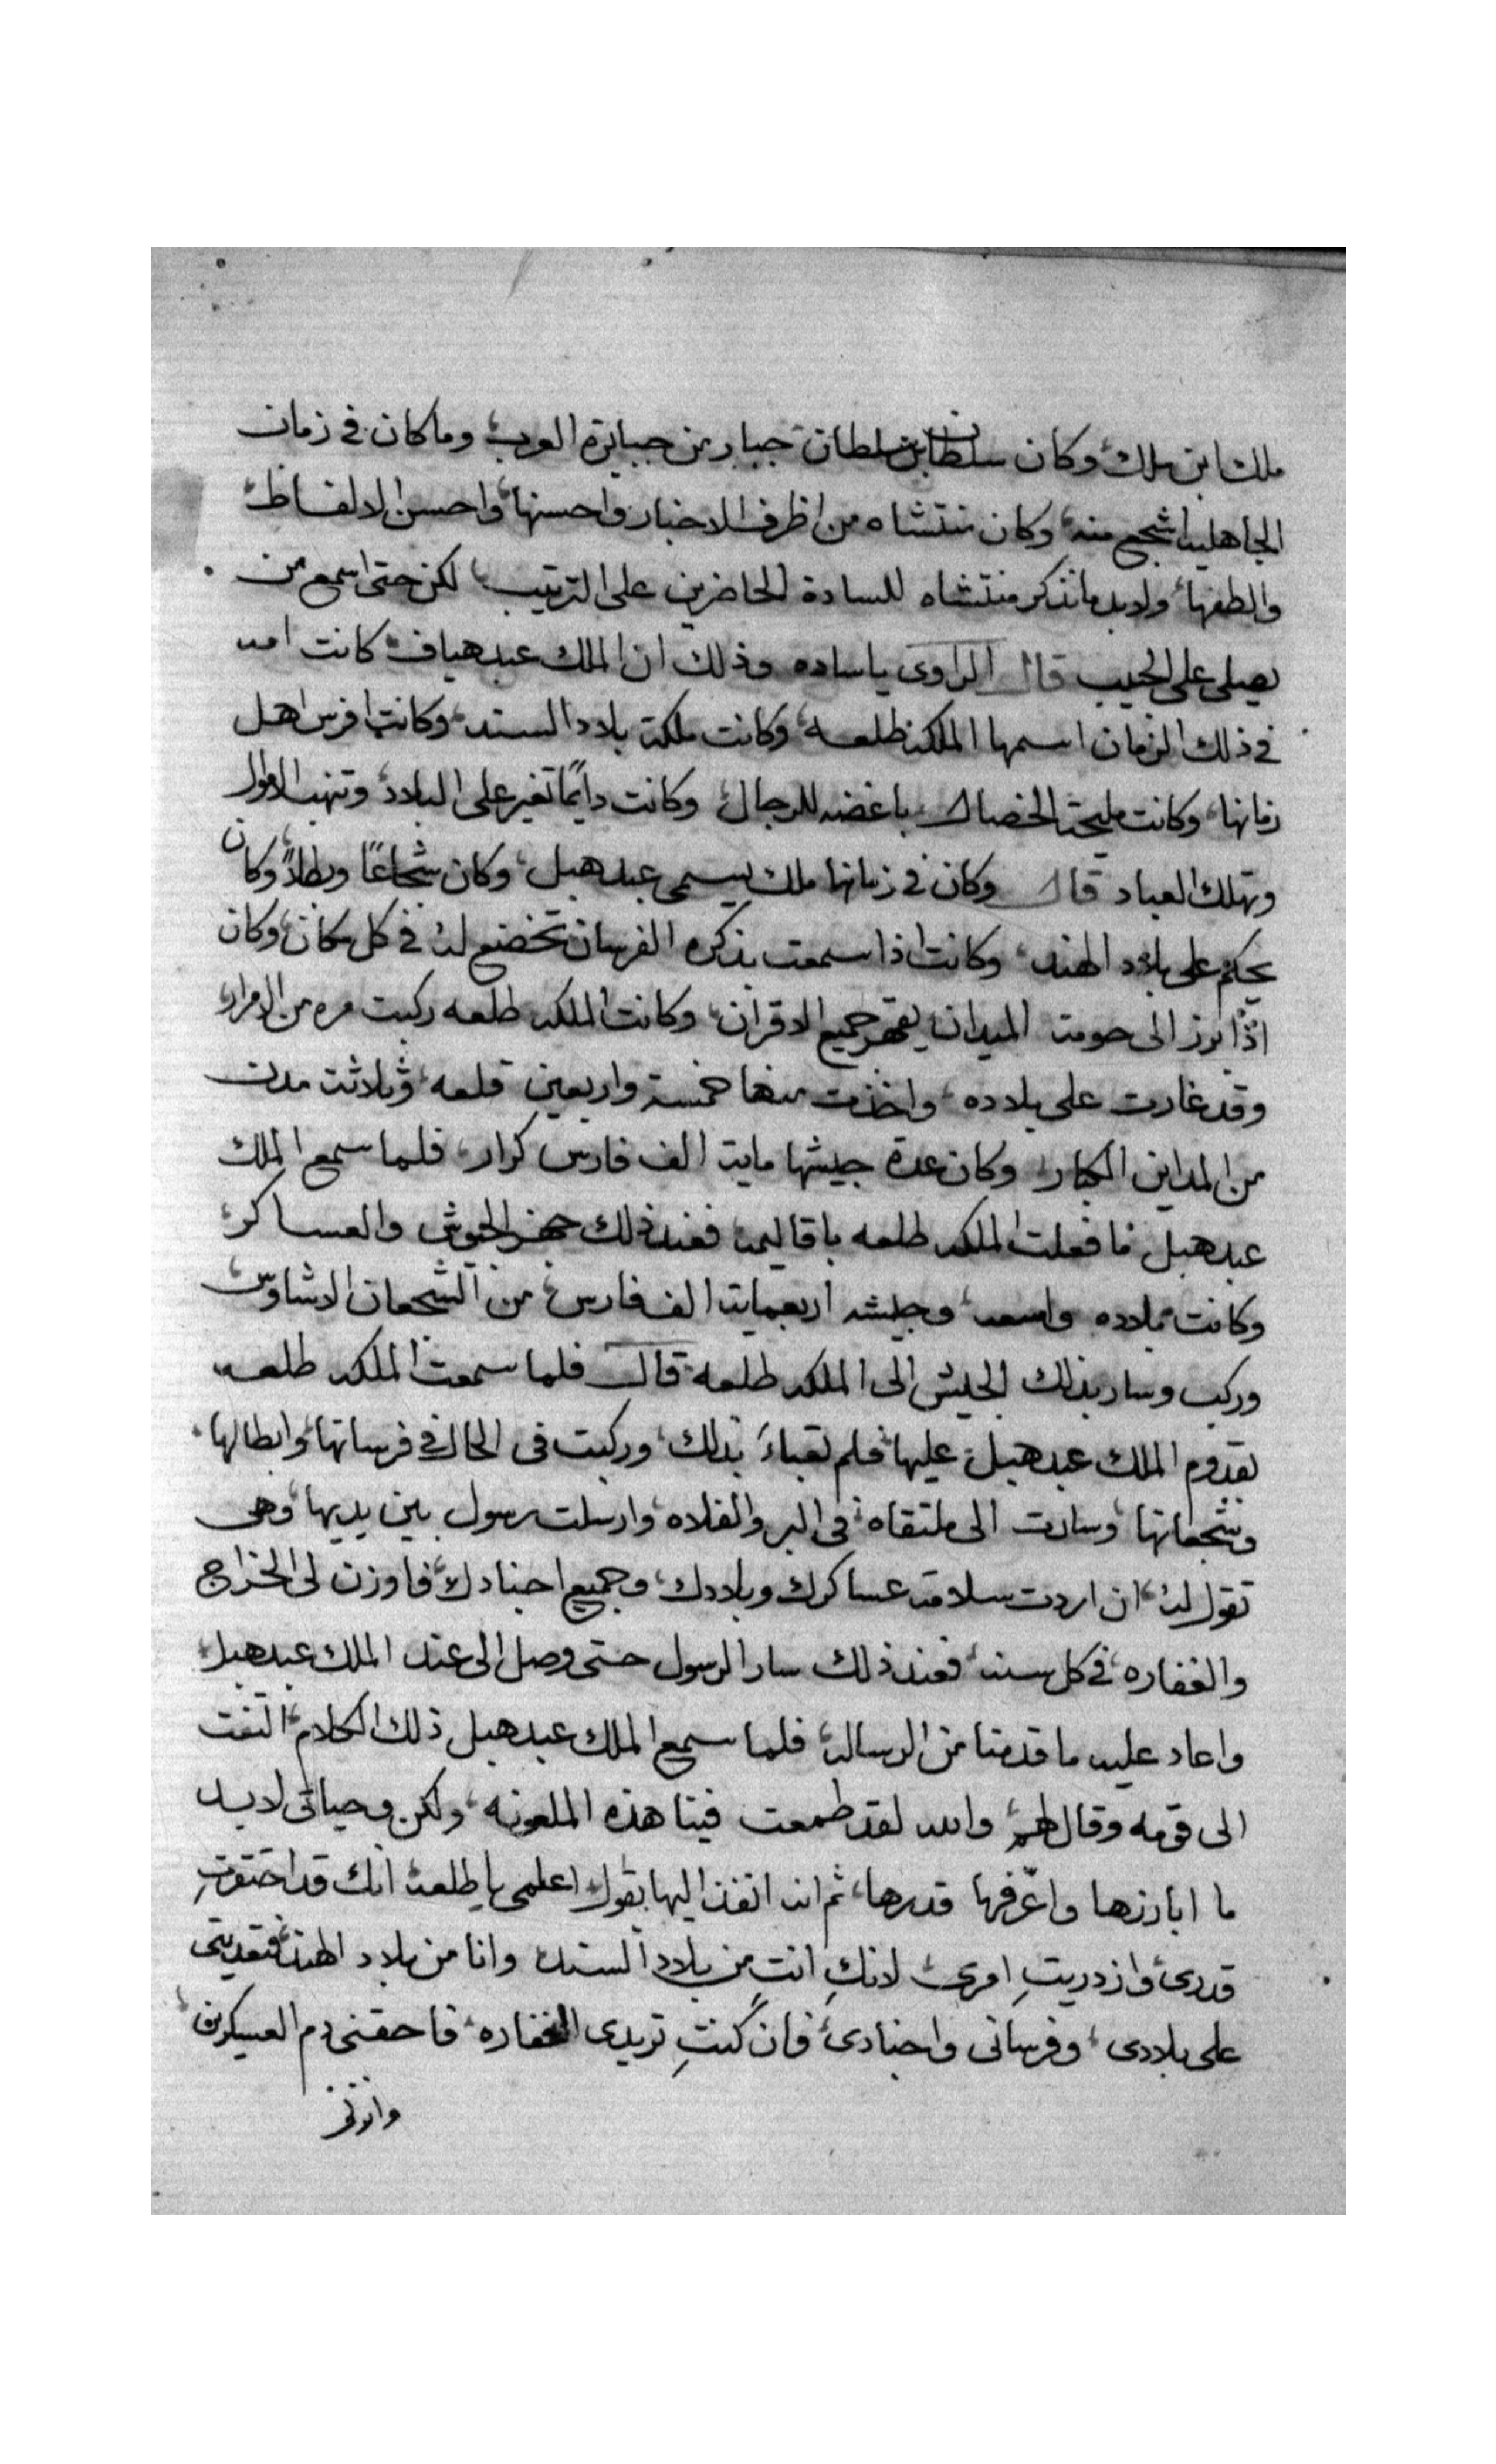 ملك ابن ملك، وكان سلطان بن سلطان جبار من جبابرة العرب، وما كان في زمان
الجاهليه اشجع منه، وكان منتشاه من اظرف الاخبار واحسنها، واحسن الالفاظ
والطفها، ولا بد ما نذكر منتشاه للسادة الحاضرين على الترتيب، لكن حتى اسمع من
يصلي على الحبيب قال الراوى ياساده وذلك ان الملك عبد هياف كانت امه
في ذلك الزمان اسمها الملكه طلعه، وكانت ملكة بلاد السند، وكانت افرس اهل
زمانها، وكانت مليحة الخصال، باغضه للرجال، وكانت دايمًا تغير على البلاد، وتنهب الاموال
وتهلك العباد قال وكان في زمانها ملك يسمى عبد هبل، وكان شجاعًا وبطلاً، وكان
يحكم على بلاد الهند، وكانت اذا سمعت بذكره الفرسان تخضع له في كل مكان، وكان
اذا برز الى حومت الميدان يقهر جميع الاقران، وكانت الملكه طلعه ركبت مره من الامرار
وقد غارت على بلاده، واخذت منها خمسة واربعين قلعه، وثلاثت مدن
من المداين الكبار، وكان عدة جيشها مايت الف فارس كرار، فلما سمع الملك
عبد هبل ما فعلت الملكه طلعه باقاليمه فعند ذلك جهز الجيوش والعساكر،
وكانت بلاده واسعه، وجيشه اربعمايت الف فارس، من الشجعان الاشاوس،
وركب وسار بذلك الجيش الى الملكه طلعه، قال فلما سمعت الملكه طلعه،
بقدوم الملك عبد هبل عليها، فلم تعباء بذلك، وركبت فى الحال في فرسانها، وابطالها،
وشجعانها، وسارت الى ملتقاه، فى البر والفلاه، وارسلت رسول بين يديها، وهى
تقول له، ان اردت سلامة عساكرك وبلادك، وجميع اجنادك، فاوزن لى الخراج
والغفاره، في كل سنه، فعند ذلك سار الرسول حتى وصل الى عند الملك عبد هبل،
واعاد عليه ما قدمنا من الرساله، فلما سمع الملك عبد هبل ذلك الكلام، التفت
الى قومه وقال لهم، والله لقد طمعت فينا هذه الملعونه، ولكن وحياتى لا بد
ما ابارزها واعرّفها قدرها، ثم انه انفذ اليها يقول، اعلمى يا طلعه انك قد احتقرتِ
قدرى، وازدريتِ امرى، لانكِ انتِ من بلاد السند، وانا من بلاد الهند، فتعديتى
على بلادى، وفرسانى واجنادى، فان كنتِ تريدى الغفاره، فاحقنى دم العسكرين،
وابرزى